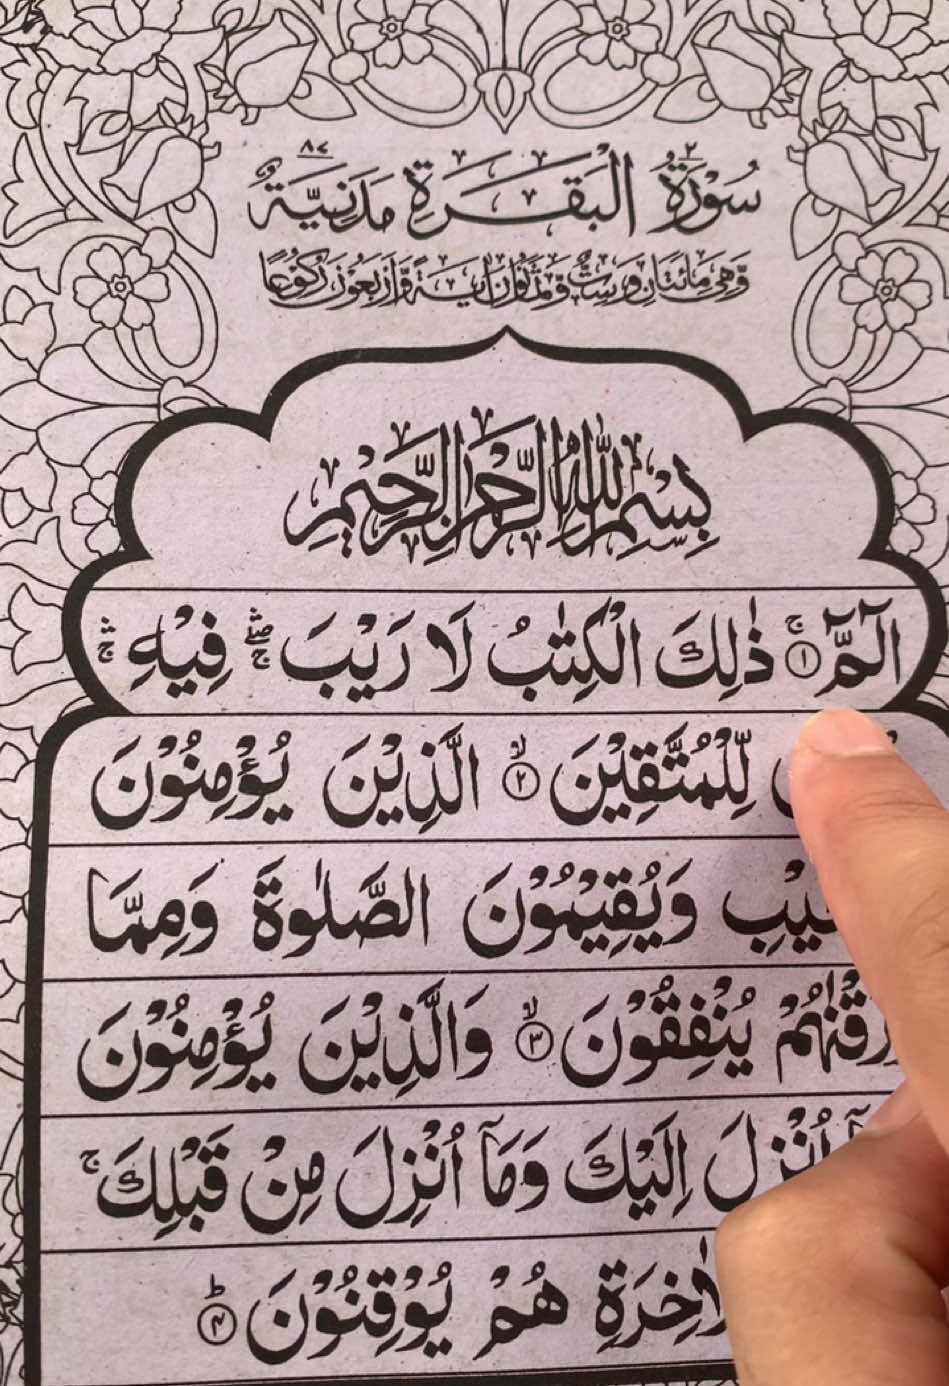 سُوْرَةُ ٢ الْبَقَرَةِ مَدَنِيَّةٌ ٨٧
وَّهِىَ مِائَتَانِ وَسِتٌّ وَّثَمَانُوْنَ اٰيَةً وَّاَرْبَعُوْنَ رُكُوْعًا
بِسْمِ اللّٰهِ الرَّحْمٰنِ الرَّحِيْمِ
الٓمّٓ ۚ ﴿١﴾ ذٰلِكَ الْكِتٰبُ لَا رَيْبَ ۛۖۚ فِيْهِ ۛۚ
لِّلْمُتَّقِيْنَ ۙ ﴿٢﴾ الَّذِيْنَ يُؤْمِنُوْنَ
وَيُقِيْمُوْنَ الصَّلٰوةَ وَمِمَّا
يُنْفِقُوْنَ ۙ ﴿٣﴾ وَالَّذِيْنَ يُؤْمِنُوْنَ
اُنْزِلَ اِلَيْكَ وَمَآ اُنْزِلَ مِنْ قَبْلِكَ ۚ
هُمْ يُوْقِنُوْنَ ؕ ﴿٤﴾